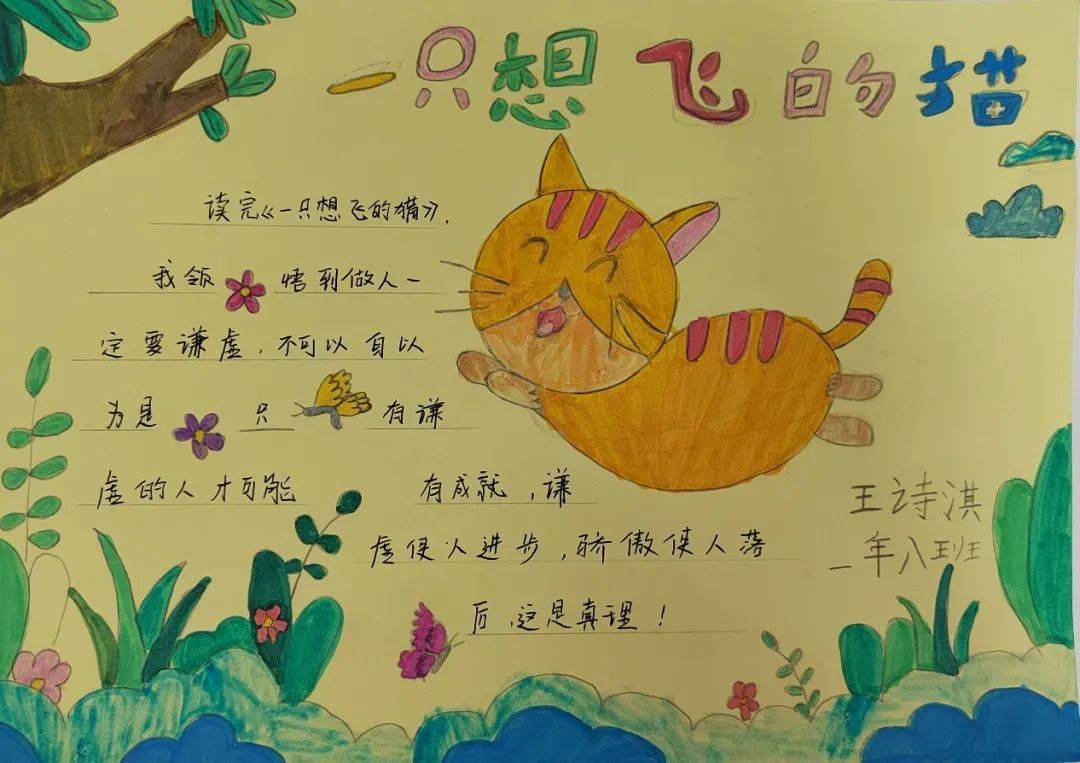 一只想飞的猫
读完《一只想飞的猫》，
我领悟到做人一
定要谦虚，不可以自以
为是 只有谦
虚的人才可能有成就，谦
虚使人进步，骄傲使人落
后，这是真理！
王诗淇
一年八班